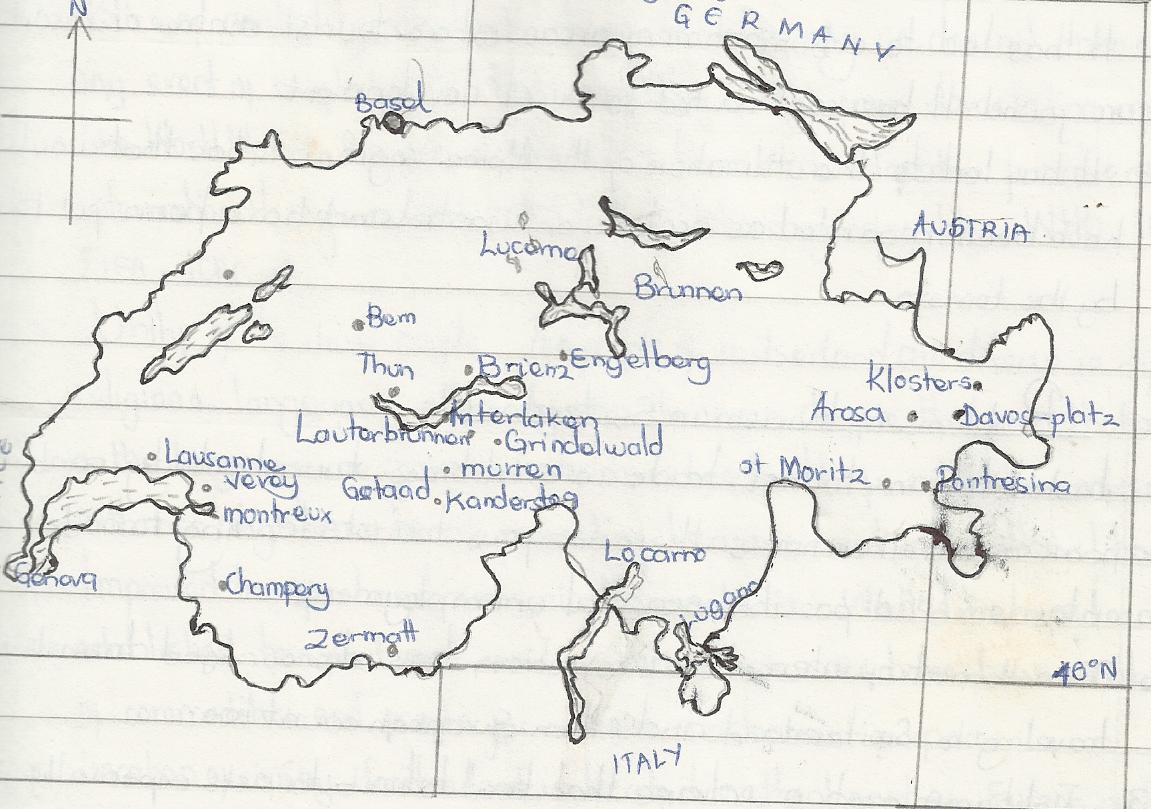 N
GERMANY
Basel
AUSTRIA
Lucerne
Brunnen
Bern
Thun
Brienz
Engelberg
Klosters
Arosa
Davos-platz
Interlaken
Lauterbrunnen
Grindelwald
Lausanne
Vevey
murren
st Moritz
Gstaad
Kandersteg
Pontresina
montreux
Locarno
Geneva
Champery
Lugano
Zermatt
46°N
ITALY